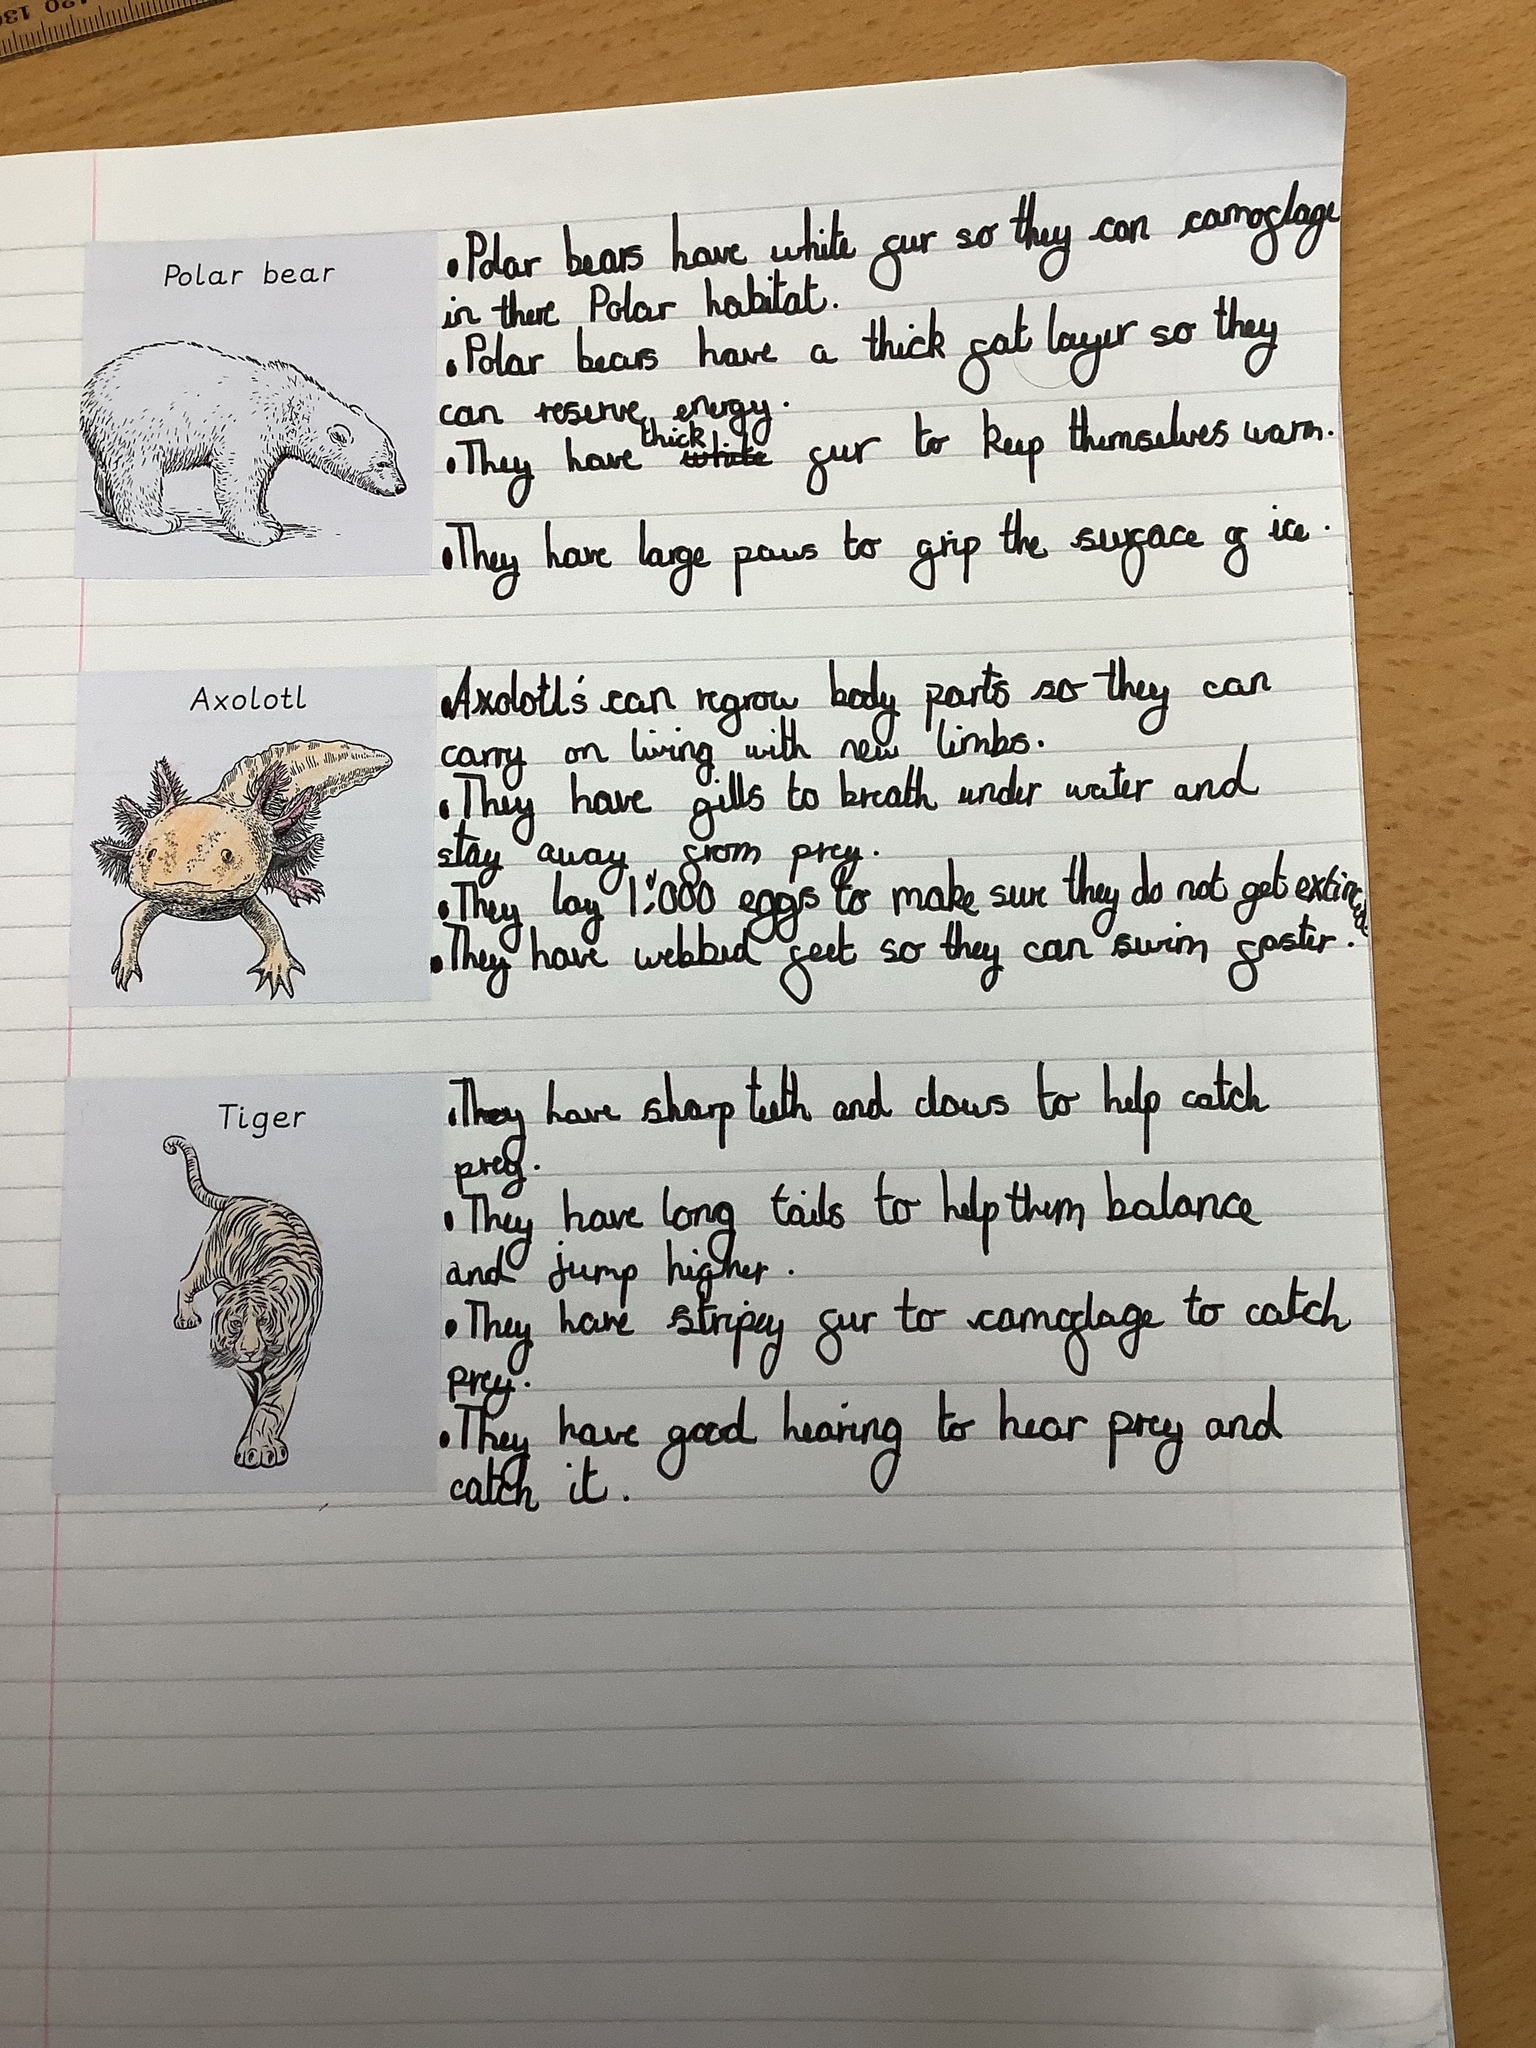 120 130
Polar bear
•Polar bears have white fur so they can camoflage
in there Polar habitat.
•Polar bears have a thick fat layer so they
can reserve energy.
•They have thick white fur to keep themselves warm.
•They have large paws to grip the surface of ice.
Axolotl
•Axolotl's can regrow body parts so they can
carry on living with new limbs.
•They have gills to breath under water and
stay away from prey.
•They lay 1,000 eggs to make sure they do not get extinct.
•They have webbed feet so they can swim faster.
Tiger
•They have sharp teeth and claws to help catch
prey.
•They have long tails to help them balance
and jump higher.
•They have stripey fur to camoflage to catch
prey.
•They have good hearing to hear prey and
catch it.